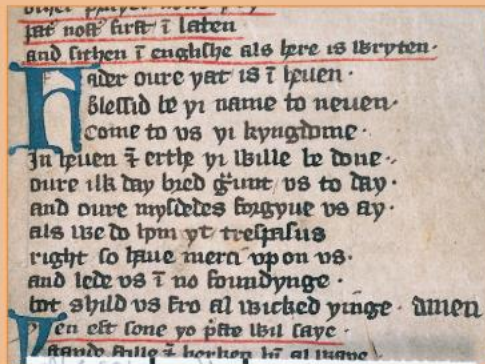 þat nost first ī laten
and sithen ī englishe als here is wryten·
Fader oure yat is ī heuen·
Blessid be yi name to neuen·
Come to vs yi kyngdome·
In heuen ⁊ erthe yi wille be done·
oure ilk day bred g̃unt vs to day·
and oure mysdedes forgyue vs ay·
als we do hom yt trespasus
right so haue merci vp on vs·
and lede vs ī no foundynge·
bot shild vs fro al wicked yinge· amen
Þen est sone yo p̃ste wil saye·
stande stille ⁊ herken